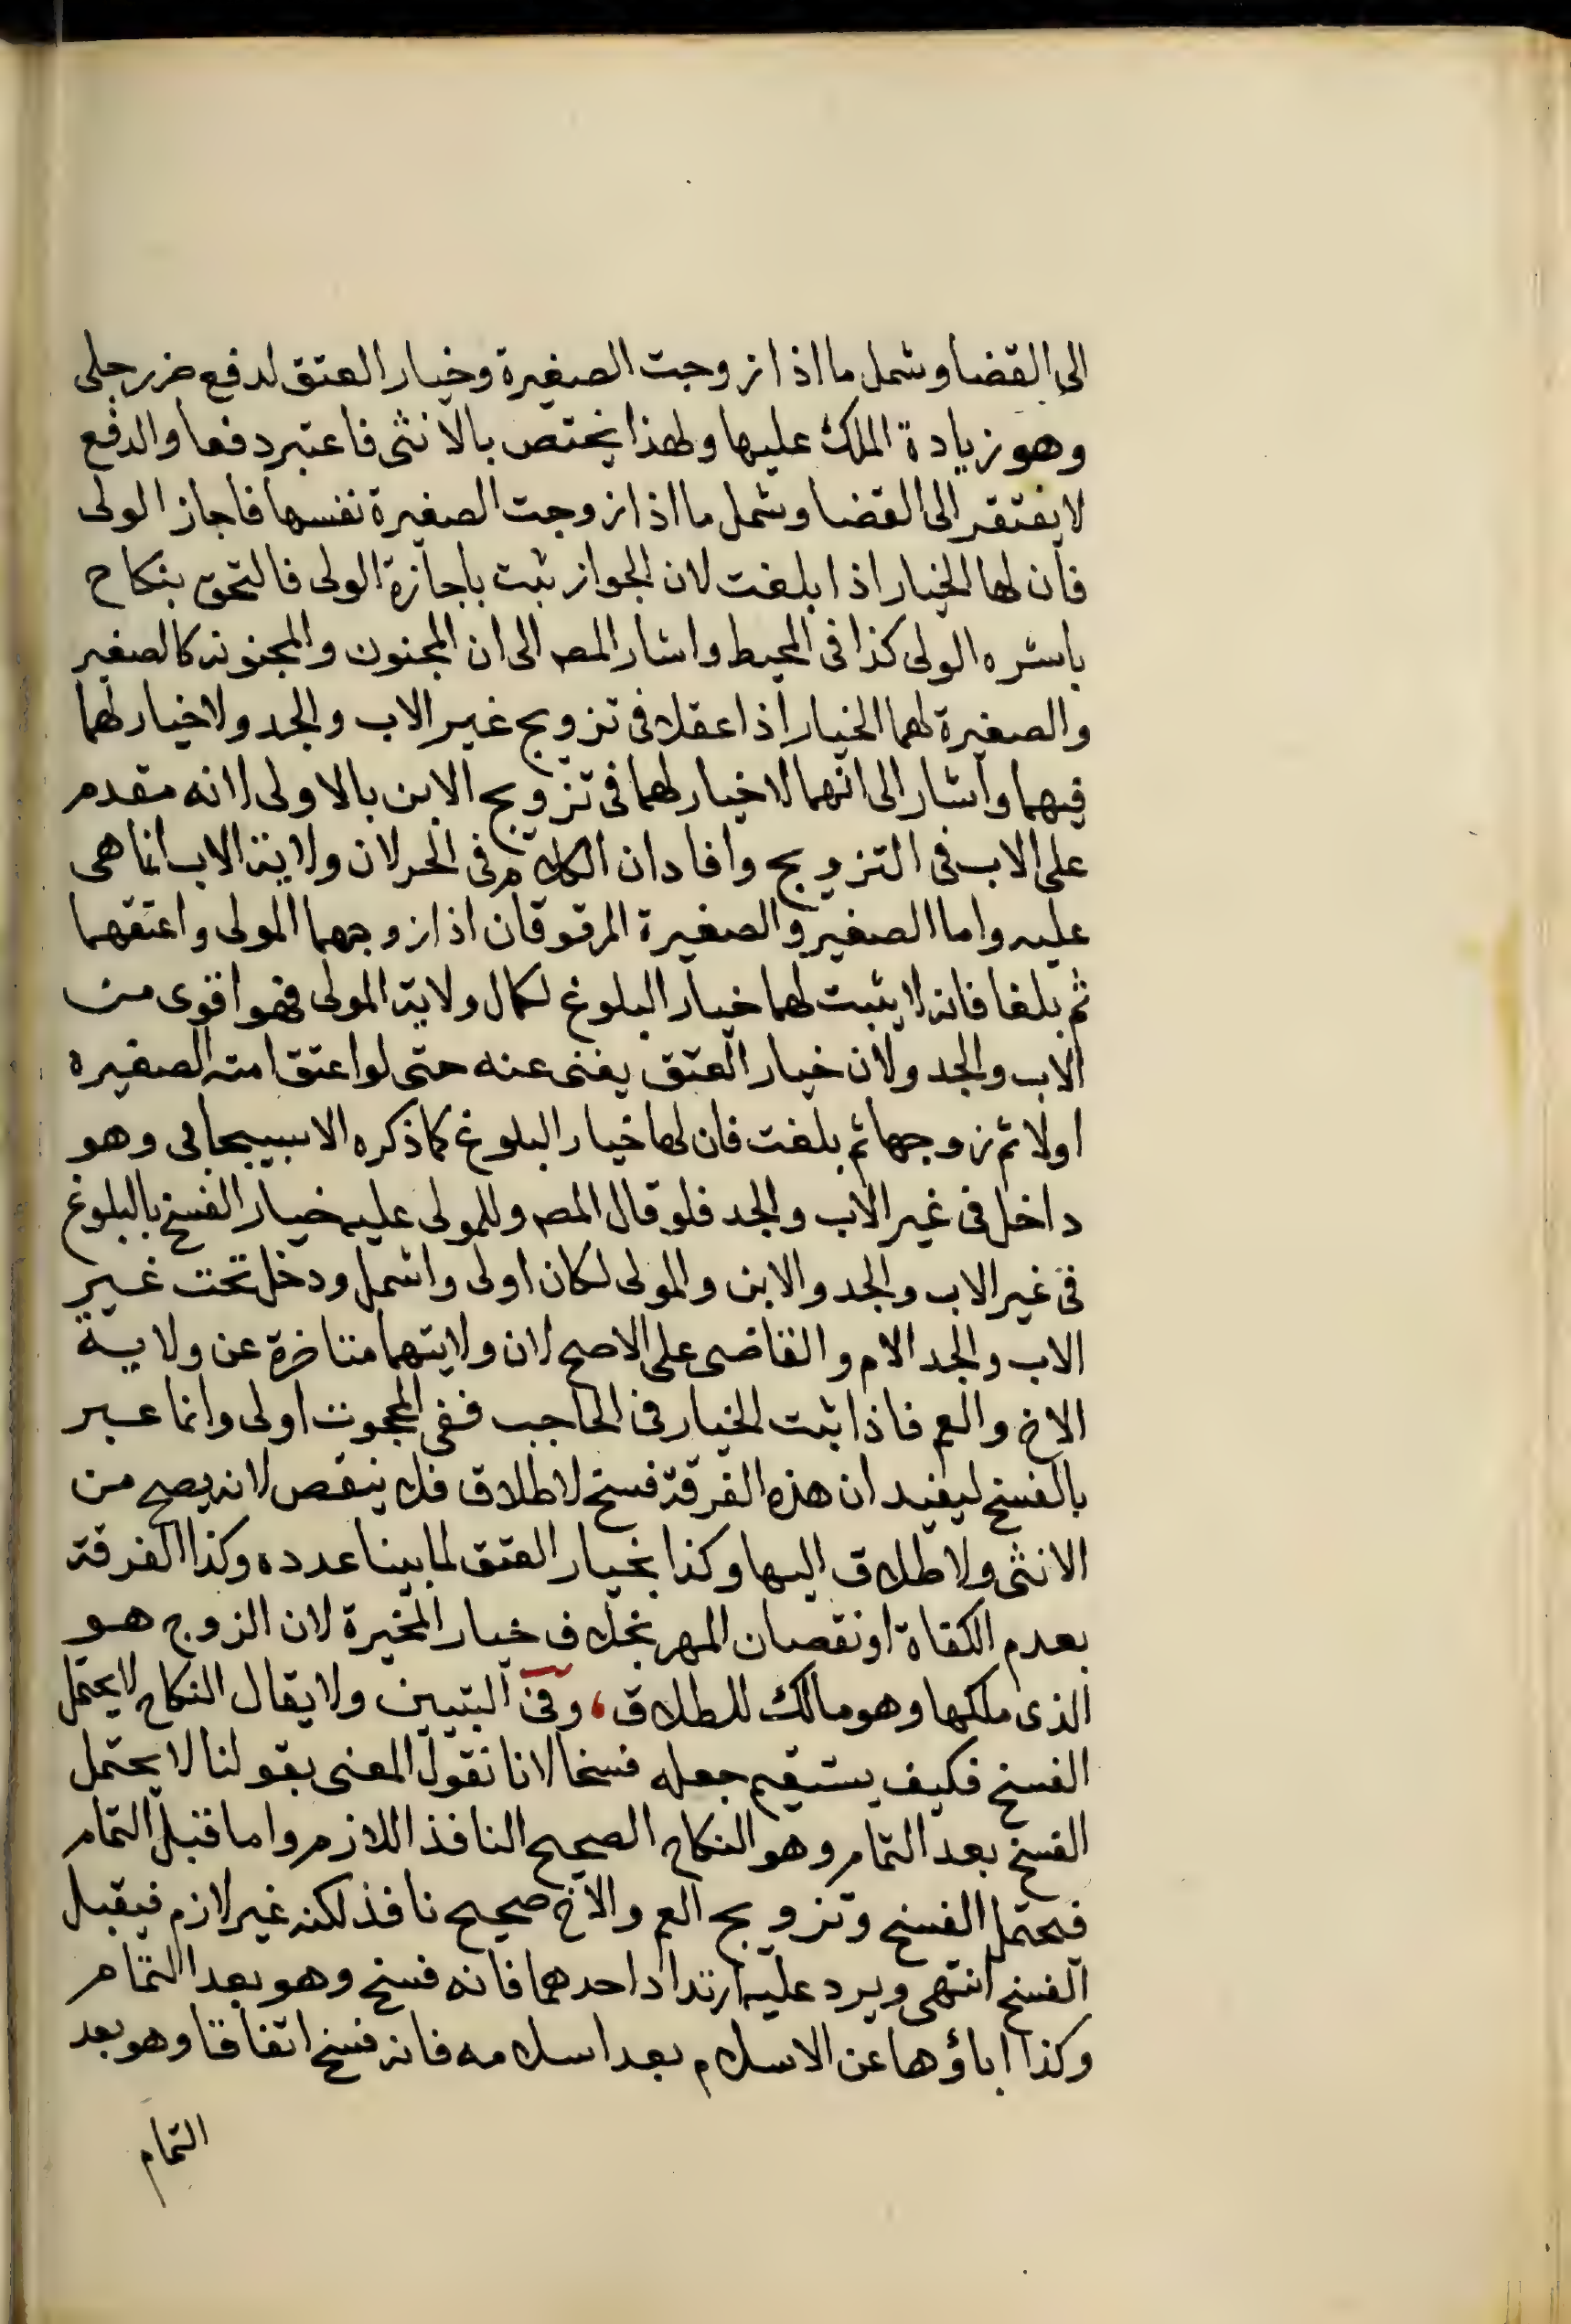 الى القضا وشمل ما اذا زوجت الصغيرة وخيار العتق لدفع ضرر جلى
وهو زيادة الملك عليها ولهذا يختص بالانثى فاعتبر دفعا والدفع
لا يفتقر الى القضا وشمل ما اذا زوجت الصغيرة نفسها فاجاز الولى
فان لها الخيار اذا بلغت لان الجواز ثبت باجازة الولى فالتحق بنكاح
باشره الولى كذا فى المحيط واشار المصـ الى ان المجنون والمجنونة كالصغير
والصغيرة لهما الخيار اذا عقلا فى تزويج غير الاب والجد ولا خيار لهما
فيهما واشار الى انهما لا خيار لهما فى تزويج الابن بالاولى لانه مقدم
على الاب فى التزويج وافاد ان الكلام فى الحر لان ولاية الاب انما هى
عليه واما الصغير والصغيرة المرقوقان اذا زوجهما المولى واعتقهما
ثم بلغا فانه لا يثبت لهما خيار البلوغ لكمال ولاية المولى فهو اقوى من
الاب والجد ولان خيار العتق يغنى عنه حتى لو اعتق امته الصغيره
اولا ثم زوجها ثم بلغت فان لها خيار البلوغ كما ذكره الاسبيجابى وهو
داخل فى غير الاب والجد فلو قال المصـ وللمولى عليه خيار الفسخ بالبلوغ
فى غير الاب والجد والابن والمولى لكان اولى واشمل ودخل تحت غير
الاب والجد الام والقاضى على الاصح لان ولايتهما متاخرة عن ولاية
الاخ والعم فاذا ثبت الخيار فى الحاجب ففى المحجوب اولى وانما عبر
بالفسخ ليفيد ان هذه الفرقة فسخ لا طلاق فلا ينقص لانه يصح من
الانثى ولا طلاق اليها وكذا بخيار العتق لما بينا عدده وكذا الفرقة
بعدم الكفاة او نقصان المهر بخلاف خيار المخيرة لان الزوج هو
الذى ملكها وهو مالك للطلاق، وفى التبيين ولا يقال النكاح لا يحتمل
الفسخ فكيف يستقيم جعله فسخا لانا نقول المعنى بقولنا لا يحتمل
الفسخ بعد التمام وهو النكاح الصحيح النافذ اللازم واما قبل التمام
فيحتمل الفسخ وتزويج العم والاخ صحيح نافذ لكنه غير لازم فيقبل
الفسخ انتهى ويرد عليه ارتداد احدهما فانه فسخ وهو بعد التمام
وكذا اباؤها عن الاسلام بعد اسلامه فانه فسخ اتفاقا وهو بعد
التمام